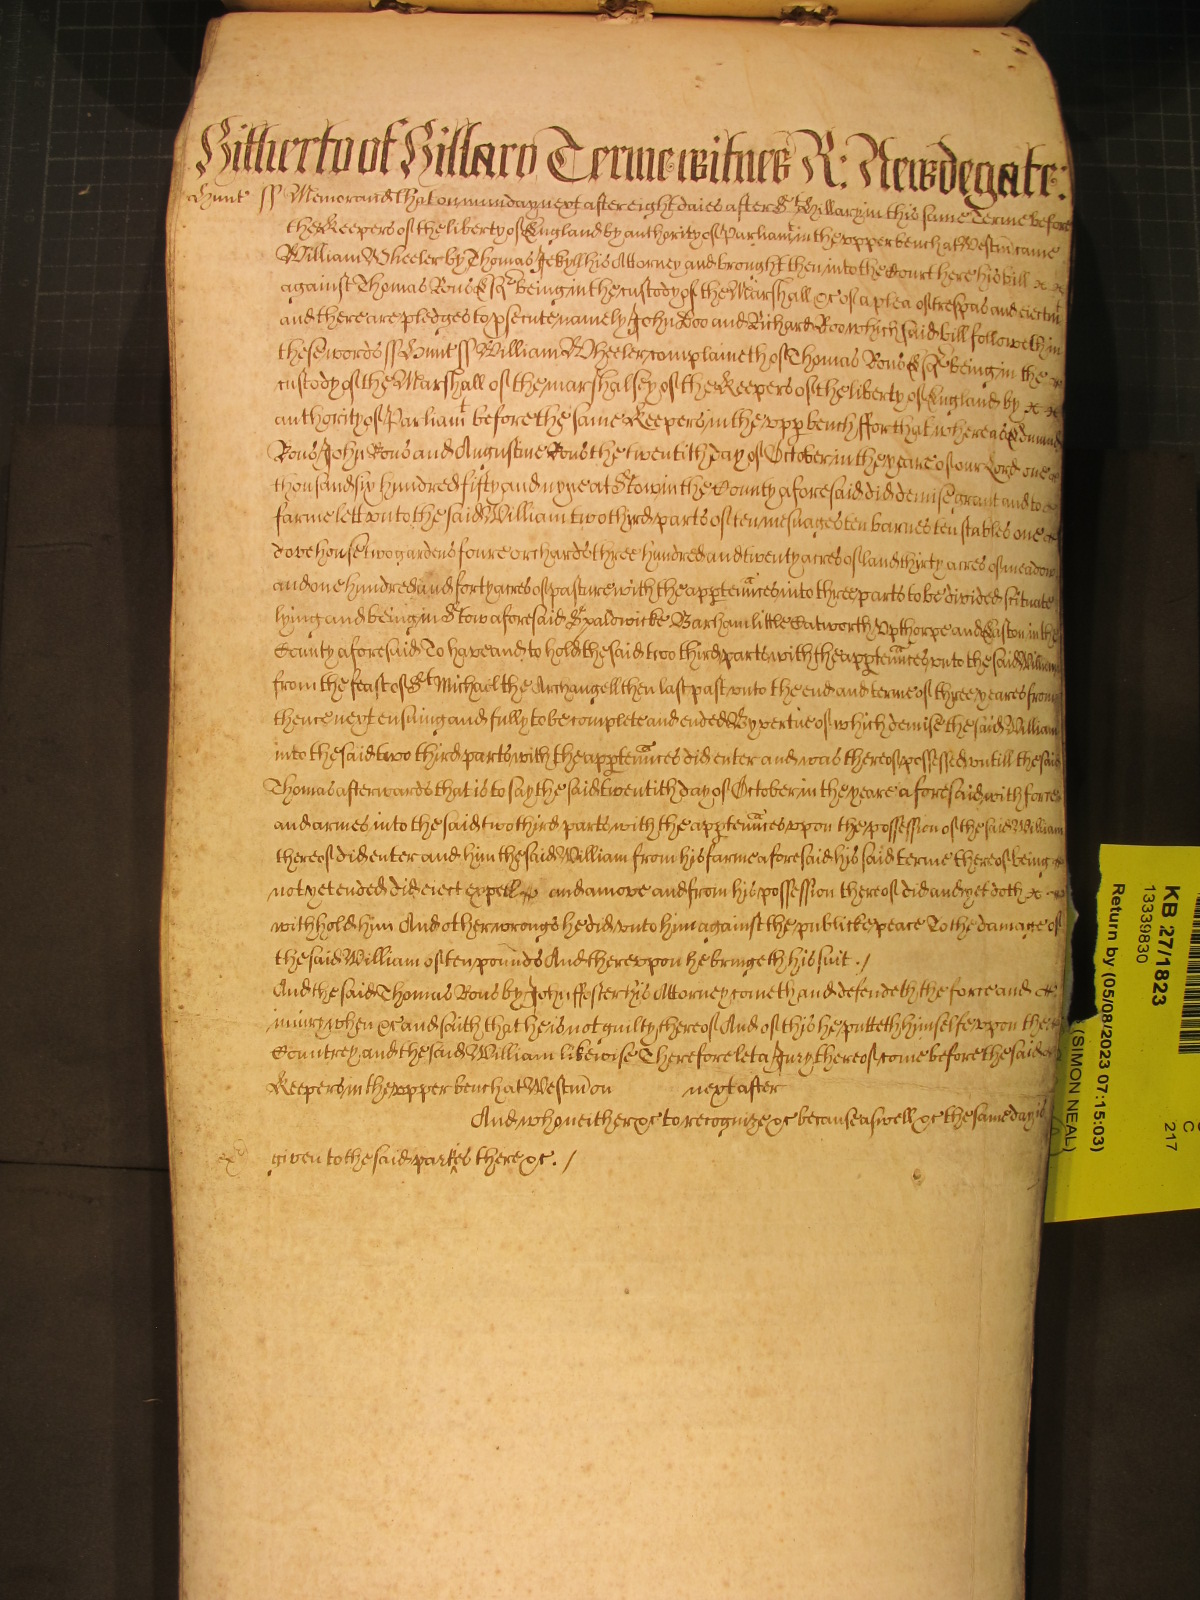 Hitherto of Hillary Terme witnes R: Newdegate:
Hunt ss Memorand that on munday next after eight daies after St Hillary in this same Terme before
the Keepers of the liberty of England by authority of Parliamt in the upper bench at Westm came
William Wheeler by Thomas Jekyll his Attorney and brought then into the Court here his bill
against Thomas Rous Esqr being in the custody of the Marshall &c of a plea of trespas and eiectmt
and there are pledges to psecute namely John Doo and Richard Roo which said bill followeth in
these words ss Hunt ss William Wheeler complaineth of Thomas Rous Esqr being in the
custody of the Marshall of the marshalsey of the Keepers of the liberty of England by
authority of Parliamt before the same Keepers in the upp bench ffor that whereas Edmund
Rous John Rous and Augustine Rous the twentith day of October in the yeare of our Lord one
thousand six hundred fifty and nyne at Stow in the County aforesaid did demise grant and to
farme lett unto the said William two third parts of ten mesuages ten barnes ten stables one
dovehouse two gardens foure orchards three hundred and twenty acres of land thirty acres of meadow
and one hundred and forty acres of pasture with the apptenances into three parts to be divided scituate
lying and being in Stow aforesaid Spaldwicke Barham little Catworth Upthorpe and Easton in the
County aforesaid To have and to hold the said two third parts with the apptenances unto the said William
from the feast of St Michael the Archangell then last past unto the end and terme of three yeares from
thence next ensuing and fully to be complete and ended By vertue of which demise the said William
into the said two third parts with the apptenances did enter and was thereof possessed untill the said
Thomas afterwards that is to say the said twentith day of October in the yeare aforesaid with force
and armes into the said two third parts with the apptenances upon the possession of the said William
thereof did enter and him the said William from his farme aforesaid his said terme thereof being
not yet ended did eiect expell and amove and from his possession thereof did and yet doth
withhold him And other wrongs he did unto him against the publicke peace To the damage of
the said William of ten pounds And thereupon he bringeth his suit ./
And the said Thomas Rous by John ffoster his Attorney cometh and defendeth the force and
iniury when &c and saith that he is not guilty thereof And of this he putteth himselfe upon the
Countrey and the said William likewise Therefore let a Jury thereof come before the said
Keepers in the upper bench at Westm on next after
And who neither &c to recognize &c because aswell &c the same day is
given to the said parties there &c. /
KB 27/1823
13339830
Return by (05/08/2023 07:15:03)
(SIMON NEAL)
C
217